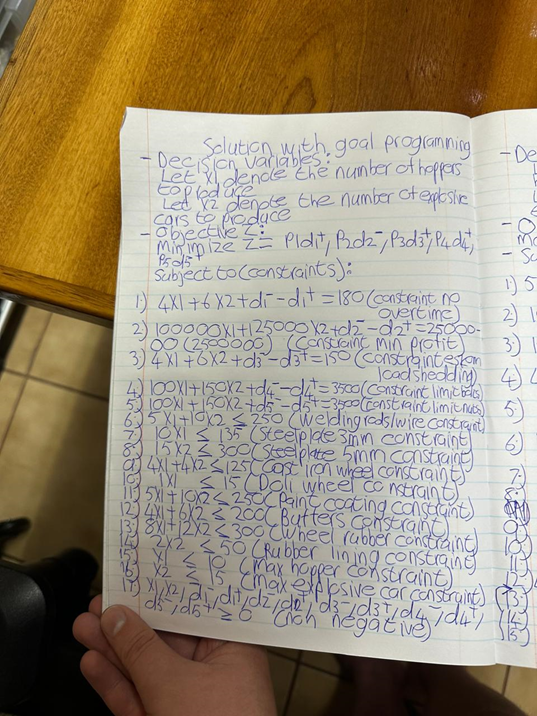 Solution with goal programming
- Decision variables:
Let X1 denote the number of hoppers
to produce
Let X2 denote the number of explosive
cars to produce
- Objective Z:
Minimize Z = P1d1+, P2d2-, P3d3+, P4d4+,
P5d5+
Subject to (constraints):
1) 4X1+6X2+d1- - d1+ = 180 (constraint no
overtime)
2) 100000X1+125000X2+d2- - d2+ = 25000-
00 (2500000) (constraint min profit)
3) 4X1+6X2+d3- - d3+ = 150 (constraint eskom
loadshedding)
4) 100X1+150X2+d4- - d4+ = 3500 (constraint limit bolts)
5) 100X1+150X2+d5- - d5+ = 3500 (constraint limit nuts)
6) 5X1+10X2 ≤ 250 (Welding rods/wire constraint)
7) 10X1 ≤ 135 (Steelplate 3mm constraint)
8) 15X2 ≤ 300 (Steelplate 5mm constraint)
9) 4X1+4X2 ≤ 125 (Cast iron wheel constraint)
10) 1X1 ≤ 15 (Doli wheel constraint)
11) 5X1+10X2 ≤ 250 (Paint coating constraint)
12) 4X1+6X2 ≤ 200 (Buffers constraint)
13) 8X1+12X2 ≤ 300 (Wheel rubber constraint)
14) 2X2 ≤ 50 (Rubber lining constraint)
15) X1 ≤ 10 (max hopper constraint)
16) X2 ≤ 15 (max explosive car constraint)
17) X1, X2, d1-, d1+, d2-, d2+, d3-, d3+, d4-, d4+,
d5-, d5+ ≥ 0 (non negative)
- De
- O
- Su
1) 5
2) 1
3) 1
4) 4
5)
6)
7)
8)
9)
10)
11)
12)
13)
14)
15)